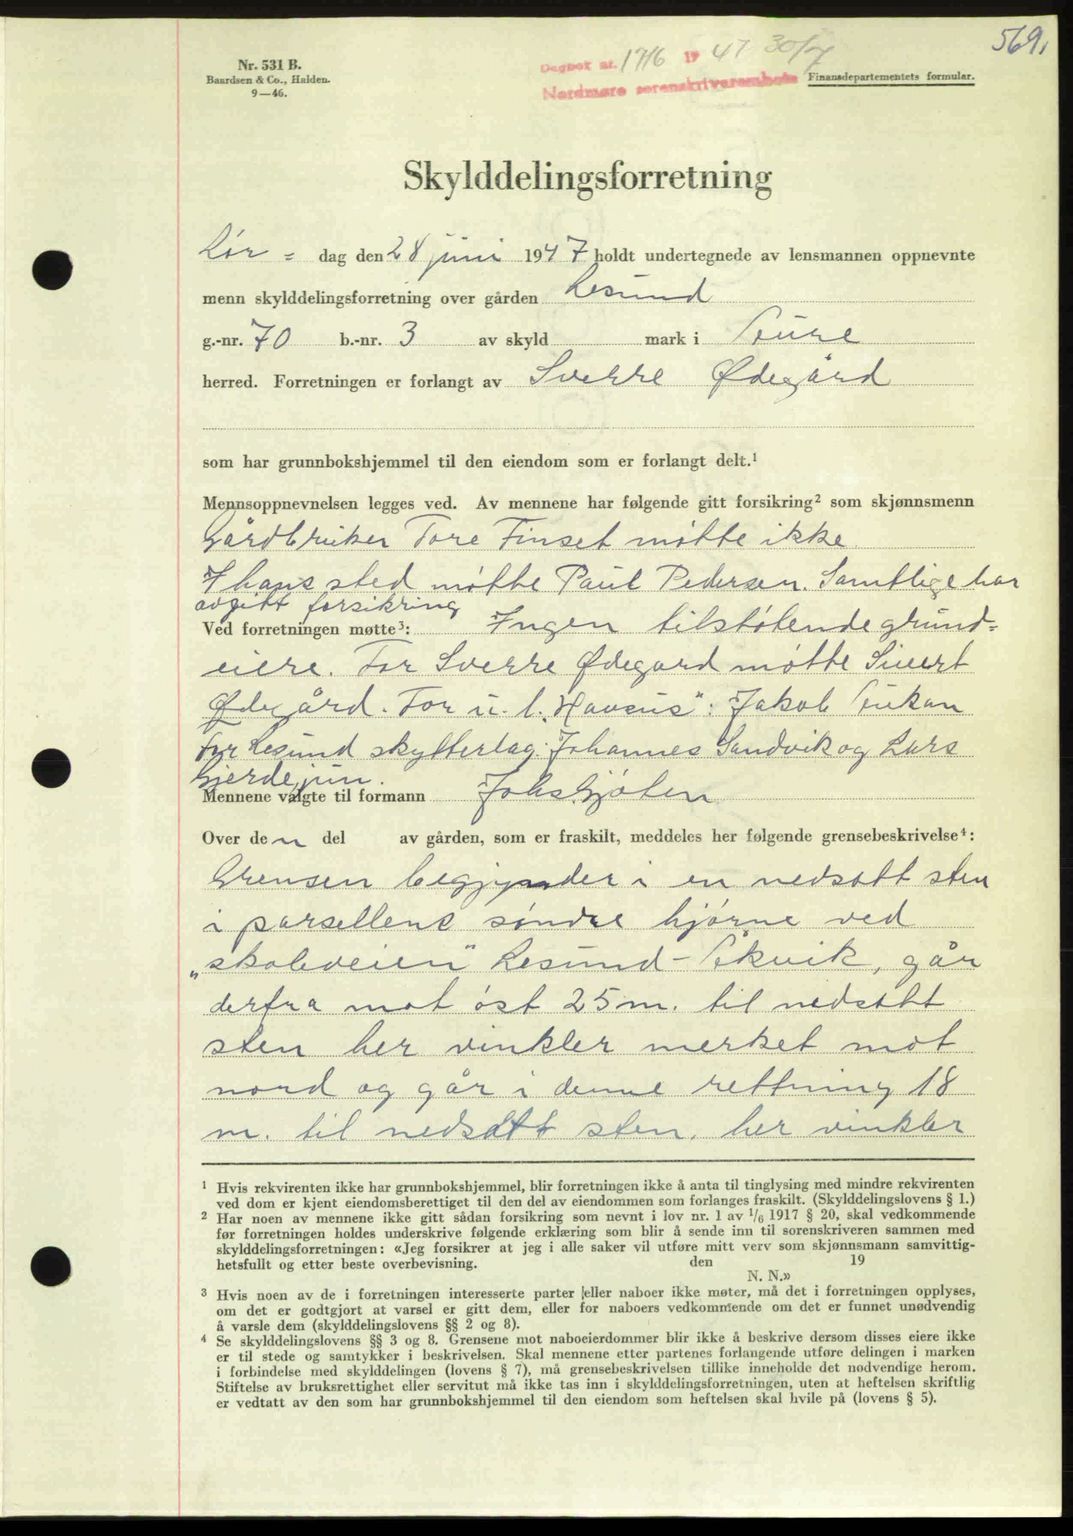 569.
Nr. 531 B.
Baardsen & Co., Halden.
9—46.
Dagbok nr. 1716 1947 30/7
Nordmøre sorenskriverembete
Finansdepartementets formular.
Skylddelingsforretning
Lør - dag den 28 juni 1947 holdt undertegnede av lensmannen oppnevnte
menn skylddelingsforretning over gården Lesund
g.-nr. 70 b.-nr. 3 av skyld mark i
herred. Forretningen er forlangt av Sverre Ødegård
som har grunnbokshjemmel til den eiendom som er forlangt delt.¹
Mennsoppnevnelsen legges ved. Av mennene har følgende gitt forsikring² som skjønnsmenn
Gårdbruker Tore Finset møtte ikke.
I hans sted møtte Paul Pedersen. Samtlige har
avgitt forsikring
Ved forretningen møtte³: Ingen tilstøtende grund=
eiere. For Sverre Ødegard møtte Sivert
Ødegård. For u. l. „Havsus": Jakob
for Lesund skytterlag: Johannes Sandvik og Lars
Gjerde jun.
Mennene valgte til formann Johs. Gjøten
Over den del av gården, som er fraskilt, meddeles her følgende grensebeskrivelse⁴:
Grensen begynder i en nedsatt sten
i parsellens søndre hjørne ved
„skoleveien" Lesund - går
derfra mot øst 25 m. til nedsatt
sten her vinkler merket mot
nord og går i denne rettning 18
m. til nedsatt sten, her vinkler
¹ Hvis rekvirenten ikke har grunnbokshjemmel, blir forretningen ikke å anta til tinglysing med mindre rekvirenten
ved dom er kjent eiendomsberettiget til den del av eiendommen som forlanges fraskilt. (Skylddelingslovens § 1.)
² Har noen av mennene ikke gitt sådan forsikring som nevnt i lov nr. 1 av 1/6 1917 § 20, skal vedkommende
før forretningen holdes underskrive følgende erklæring som blir å sende inn til sorenskriveren sammen med
skylddelingsforretningen: «Jeg forsikrer at jeg i alle saker vil utføre mitt verv som skjønnsmann samvittig-
hetsfullt og etter beste overbevisning. den 19
N. N.»
³ Hvis noen av de i forretningen interesserte parter eller naboer ikke møter, må det i forretningen opplyses,
om det er godtgjort at varsel er gitt dem, eller for naboers vedkommende om det er funnet unødvendig
å varsle dem (skylddelingslovens §§ 2 og 8).
⁴ Se skylddelingslovens §§ 3 og 8. Grensene mot naboeierdommer blir ikke å beskrive dersom disses eiere ikke
er til stede og samtykker i beskrivelsen. Skal mennene etter partenes forlangende utføre delingen i marken
i forbindelse med skylddelingen (lovens § 7), må grensebeskrivelsen tillike inneholde det nødvendige herom.
Stiftelse av bruksrettighet eller servitut må ikke tas inn i skylddelingsforretningen, uten at heftelsen skriftlig
er vedtatt av den som har grunnbokshjemmel til den eiendom som heftelsen skal hvile på (lovens § 5).